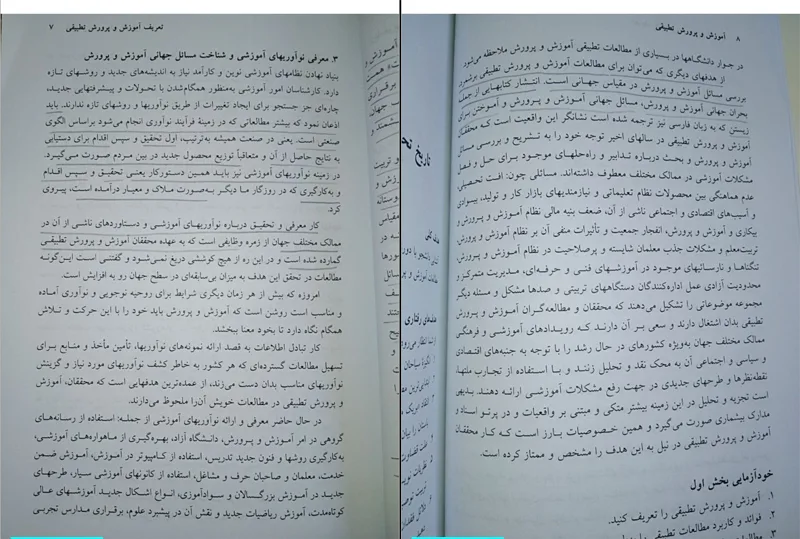 تعریف آموزش و پرورش تطبیقی ۷
۳. معرفی نوآوریهای آموزشی و شناخت مسائل جهانی آموزش و پرورش
بنیاد نهادن نظامهای آموزشی نوین و کارآمد نیاز به اندیشه‌های جدید و روشهای تازه
دارد. کارشناسان امور آموزشی به‌منظور همگام‌شدن با تحولات و پیشرفتهایی جدید،
چاره‌ای جز جستجو برای ایجاد تغییرات از طریق نوآوریها و روشهای تازه ندارند. باید
اذعان نمود که بیشتر مطالعاتی که در زمینهٔ فرآیند نوآوری انجام می‌شود براساس الگوی
صنعتی است. یعنی در صنعت همیشه به‌ترتیب، اول تحقیق و سپس اقدام برای دستیابی
به نتایج حاصل از آن و متعاقباً توزیع محصول جدید در بین مردم صورت می‌گیرد.
در زمینه نوآوریهای آموزشی نیز باید همین دستورکار یعنی تحقیق و سپس اقدام
و به‌کارگیری که در روزگار ما دیگر به‌صورت ملاک و معیار درآمده است، پیروی
کرد.
کار معرفی و تحقیق درباره نوآوریهای آموزشی و دستاوردهای ناشی از آن در
ممالک مختلف جهان از زمره وظایفی است که به عهده محققان آموزش و پرورش تطبیقی
گمارده شده است و در این ره از هیچ کوششی دریغ نمی‌شود و گفتنی است این‌گونه
مطالعات در تحقق این هدف به میزان بی‌سابقه‌ای در سطح جهان رو به افزایش است.
امروزه که بیش از هر زمان دیگری شرایط برای روحیه نوجویی و نوآوری آماده
و مناسب است روشن است که آموزش و پرورش باید خود را با این حرکت و تلاش
همگام نگاه دارد تا بخود معنا ببخشد.
کار تبادل اطلاعات به قصد ارائه نمونه‌های نوآوریها، تأمین مآخذ و منابع برای
تسهیل مطالعات گسترده‌ای که هر کشور به خاطر کشف نوآوریهای مورد نیاز و گزینش
نوآوریهای مناسب بدان دست می‌زند، از عمده‌ترین هدفهایی است که محققان، آموزش
و پرورش تطبیقی در مطالعات خویش آن‌را ملحوظ می‌دارند.
در حال حاضر معرفی و ارائه نوآوریهای آموزشی از جمله: استفاده از رسانه‌های
گروهی در امر آموزش و پرورش، دانشگاه آزاد، بهره‌گیری از ماهواره‌های آموزشی،
به‌کارگیری روشها و فنون جدید تدریس، استفاده از کامپیوتر در آموزش، آموزش ضمن
خدمت، معلمان و صاحبان حرف و مشاغل، استفاده از کانونهای آموزشی سیار، طرحهای
جدید در آموزش بزرگسالان و سوادآموزی، انواع اشکال جدید آموزشهای عالی
کوتاه‌مدت، آموزش ریاضیات جدید و نقش آن در پیشبرد علوم، برقراری مدارس تجربی
۸ آموزش و پرورش تطبیقی
در جوار دانشگاهها در بسیاری از مطالعات تطبیقی آموزش و پرورش ملاحظه می‌شود
از هدفهای دیگری که می‌توان برای مطالعات آموزش و پرورش تطبیقی برشمرد
بررسی مسائل آموزش و پرورش در مقیاس جهانی است. انتشار کتابهایی از جمله
بحران جهانی آموزش و پرورش، مسائل جهانی آموزش و پرورش و آموختن برای
زیستن که به زبان فارسی نیز ترجمه شده است نشانگر این واقعیت است که محققان
آموزش و پرورش تطبیقی در سالهای اخیر توجه خود را به تشریح و بررسی مسائل
آموزش و پرورش و بحث درباره تدابیر و راه‌حلهای موجود برای حل و فصل
مشکلات آموزشی در ممالک مختلف معطوف داشته‌اند. مسائلی چون: افت تحصیلی،
عدم هماهنگی بین محصولات نظام تعلیماتی و نیازمندیهای بازار کار و تولید، بیسوادی
و آسیب‌های اقتصادی و اجتماعی ناشی از آن، ضعف بنیه مالی نظام آموزش و پرورش و
بیکاری و آموزش و پرورش، انفجار جمعیت و تأثیرات منفی آن بر نظام آموزش و پرورش
تربیت‌معلم و مشکلات جذب معلمان شایسته و پرصلاحیت در نظام آموزش و پرورش
تنگناها و نارسائیهای موجود در آموزشهای فنی و حرفه‌ای، مدیریت متمرکز و
محدودیت آزادی عمل اداره‌کنندگان دستگاههای تربیتی و صدها مشکل و مسئله دیگر
مجموعه موضوعاتی را تشکیل می‌دهند که محققان و مطالعه‌گران آموزش و پرورش
تطبیقی بدان اشتغال دارند و سعی بر آن دارند که رویدادهای آموزشی و فرهنگی
ممالک مختلف جهان به‌ویژه کشورهای در حال رشد را با توجه به جنبه‌های اقتصادی
و سیاسی و اجتماعی آن به محک نقد و تحلیل زنند و با استفاده از تجارب ملتها،
نقطه‌نظرها و طرحهای جدیدی در جهت رفع مشکلات آموزشی ارائه دهند. بدیهی
است تجزیه و تحلیل در این زمینه بیشتر متکی و مبتنی بر واقعیات و در پرتو اسناد و
مدارک بیشماری صورت می‌گیرد و همین خصوصیات بارز است که کار محققان
آموزش و پرورش تطبیقی در نیل به این هدف را مشخص و ممتاز کرده است.
خودآزمایی بخش اول
۱. آموزش و پرورش تطبیقی را تعریف کنید.
۲. فوائد و کاربرد مطالعات تطبیقی را